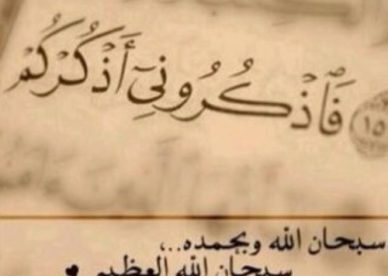 ١٥ فَٱذْكُرُونِىٓ أَذْكُرْكُمْ
سبحان الله وبحمده..،
سبحان الله العظيم ♥